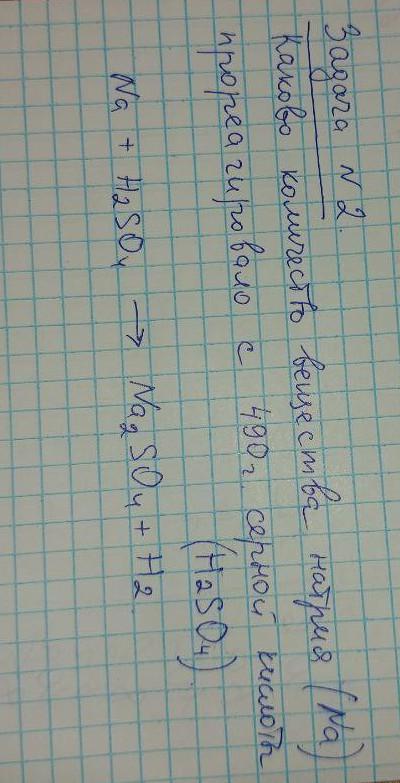 Задача N 2.
Каково количество вещества натрия (Na)
прореагировало с 490 г. серной кислоты
(H₂SO₄)
Na + H₂SO₄ → Na₂SO₄ + H₂